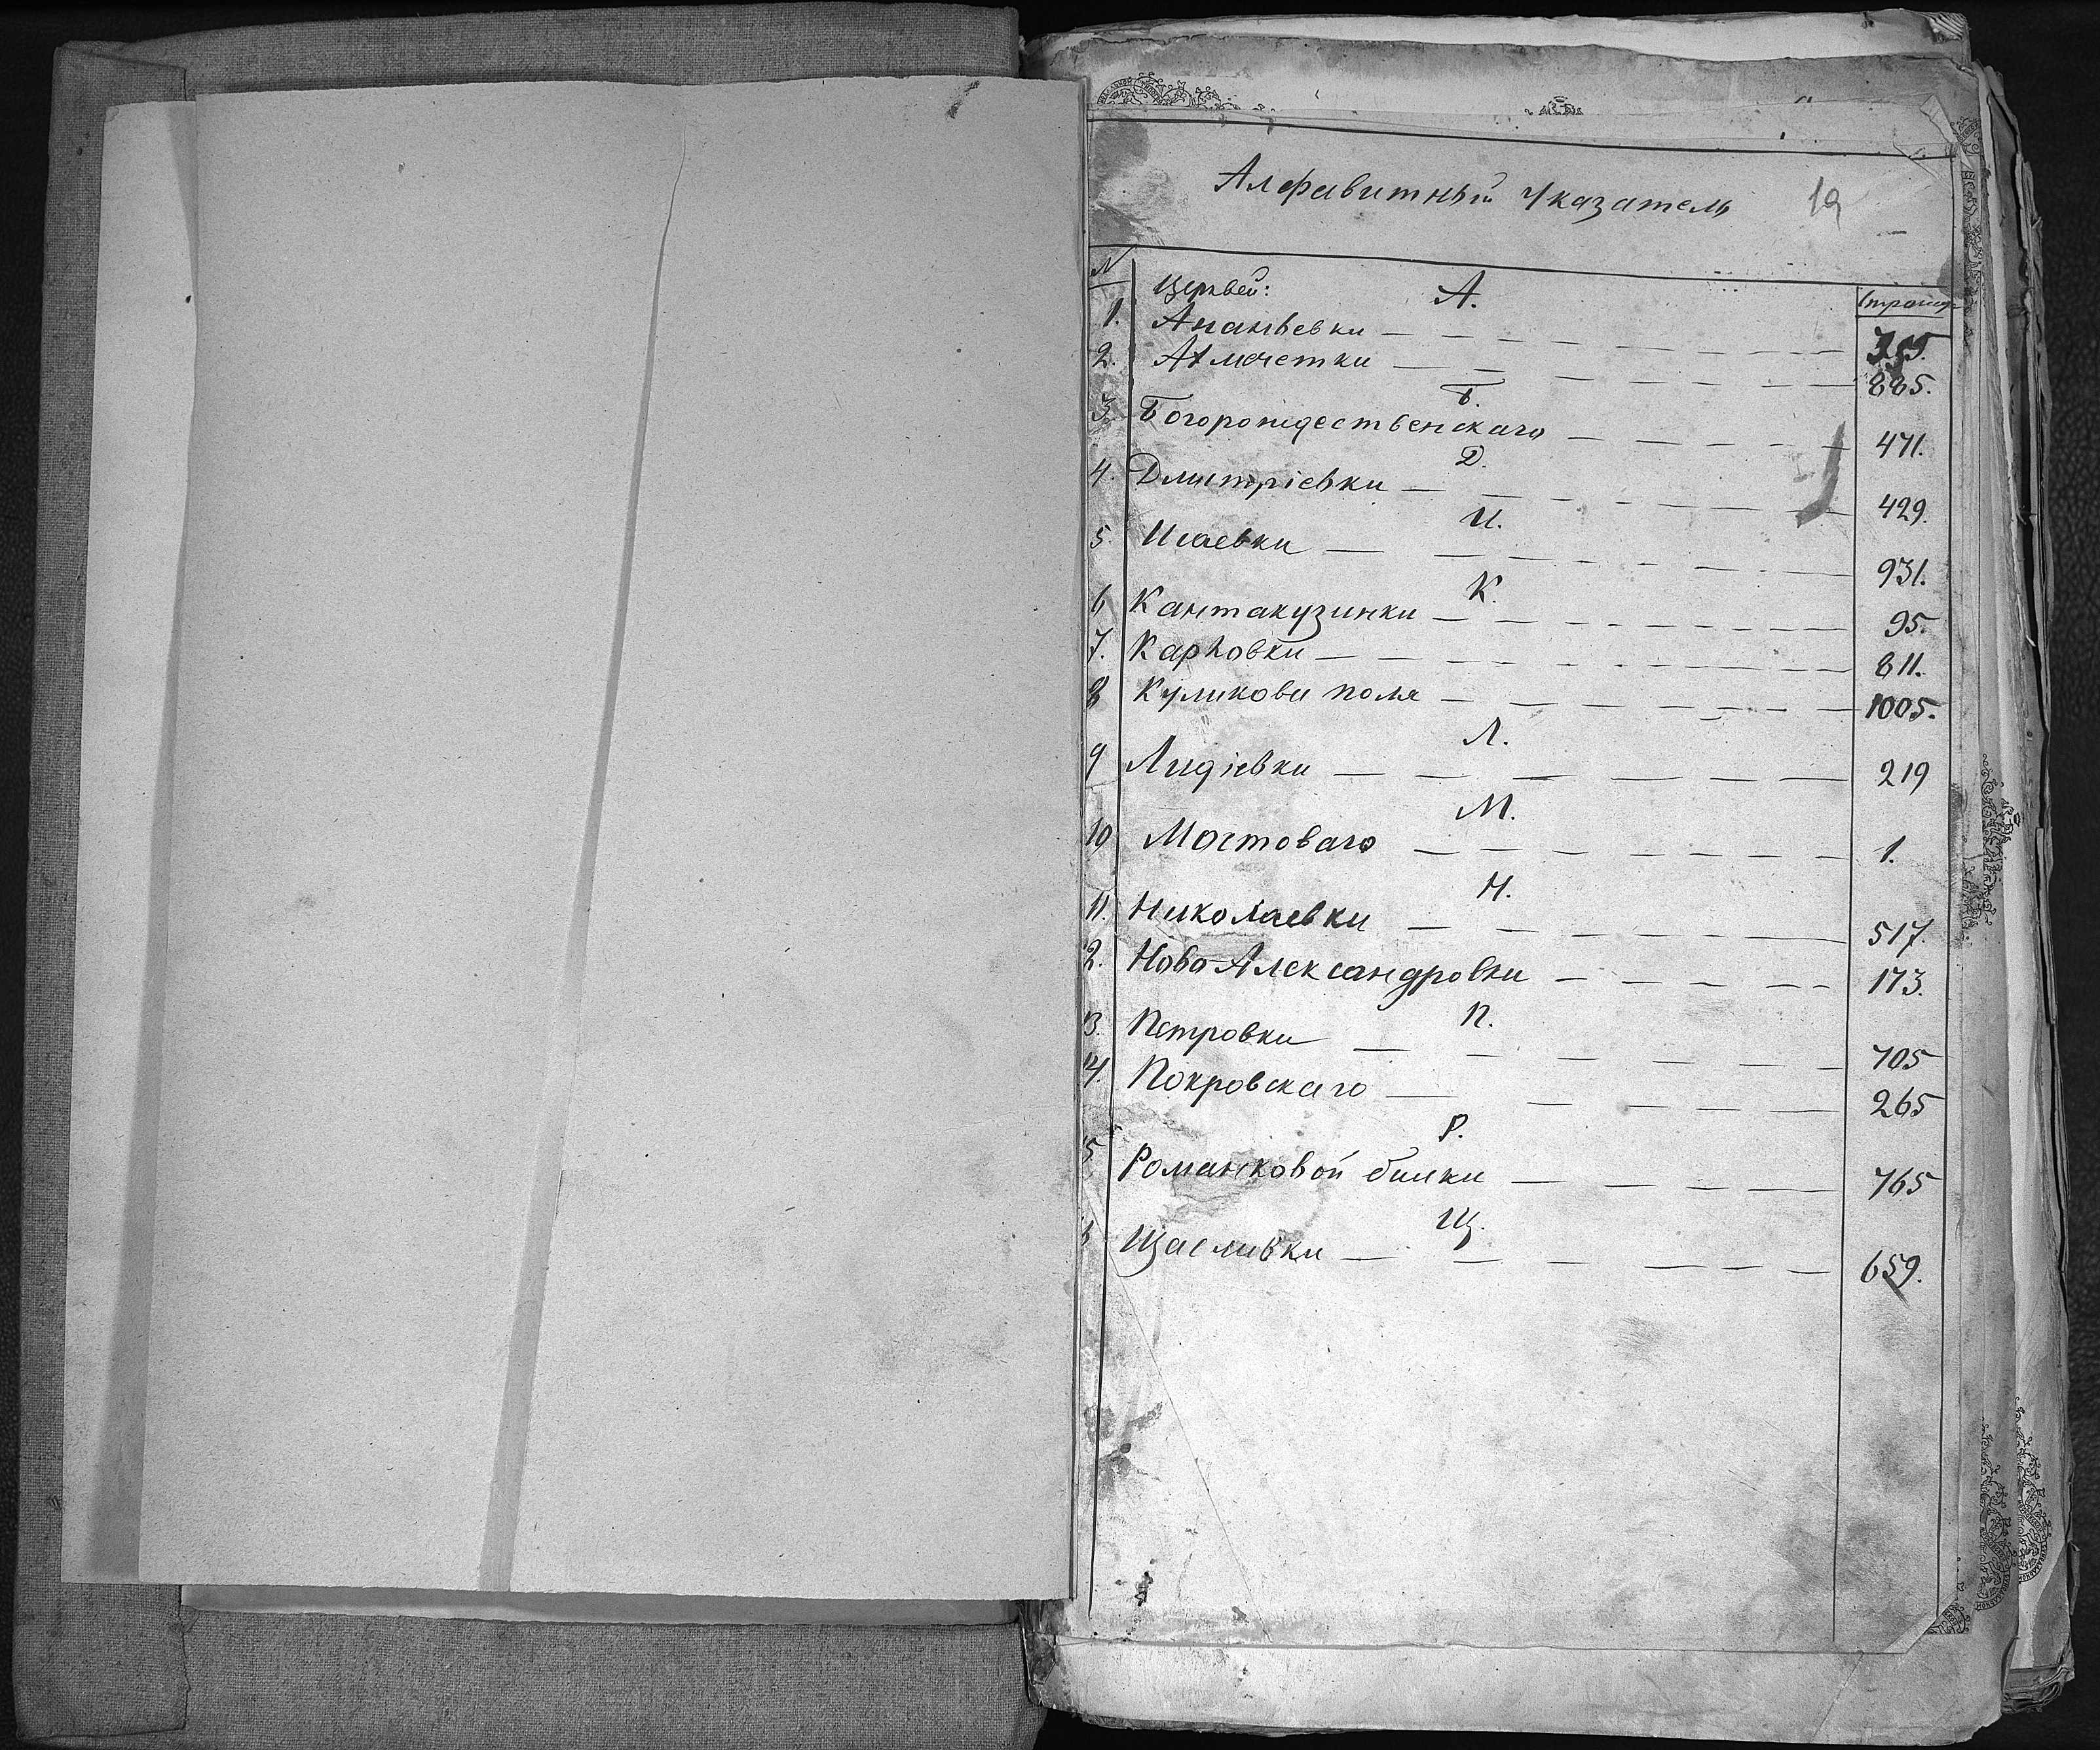 Алфавитный Указатель 19
№ Церквей: А. Страниц
1. Ананьевки
2. Ахмечетки 885.
Б.
3. Богорождественскаго 471.
Д.
4. Дмитріевки 429.
И.
5 Исаевки 931.
К.
6 Кантакузинки 95.
7. Карповки 811.
8 Куликова поля 1005.
Л.
9 Лидіевки 219
М.
10 Мостоваго 1.
Н.
11. Николаевки 517.
2. Ново Александровки 173.
П.
13. Петровки 705
14. Покровскаго 265
Р.
5 Романковой балки 765
Щ.
6 Щасливки 659.